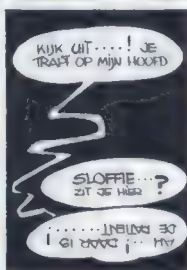 KIJK UIT.....! JE
TRAPT OP MIJN HOOFD
SLOFFIE...?
ZIT JE HIER
AH ...! DAAR IS
DE PATIENT.......!